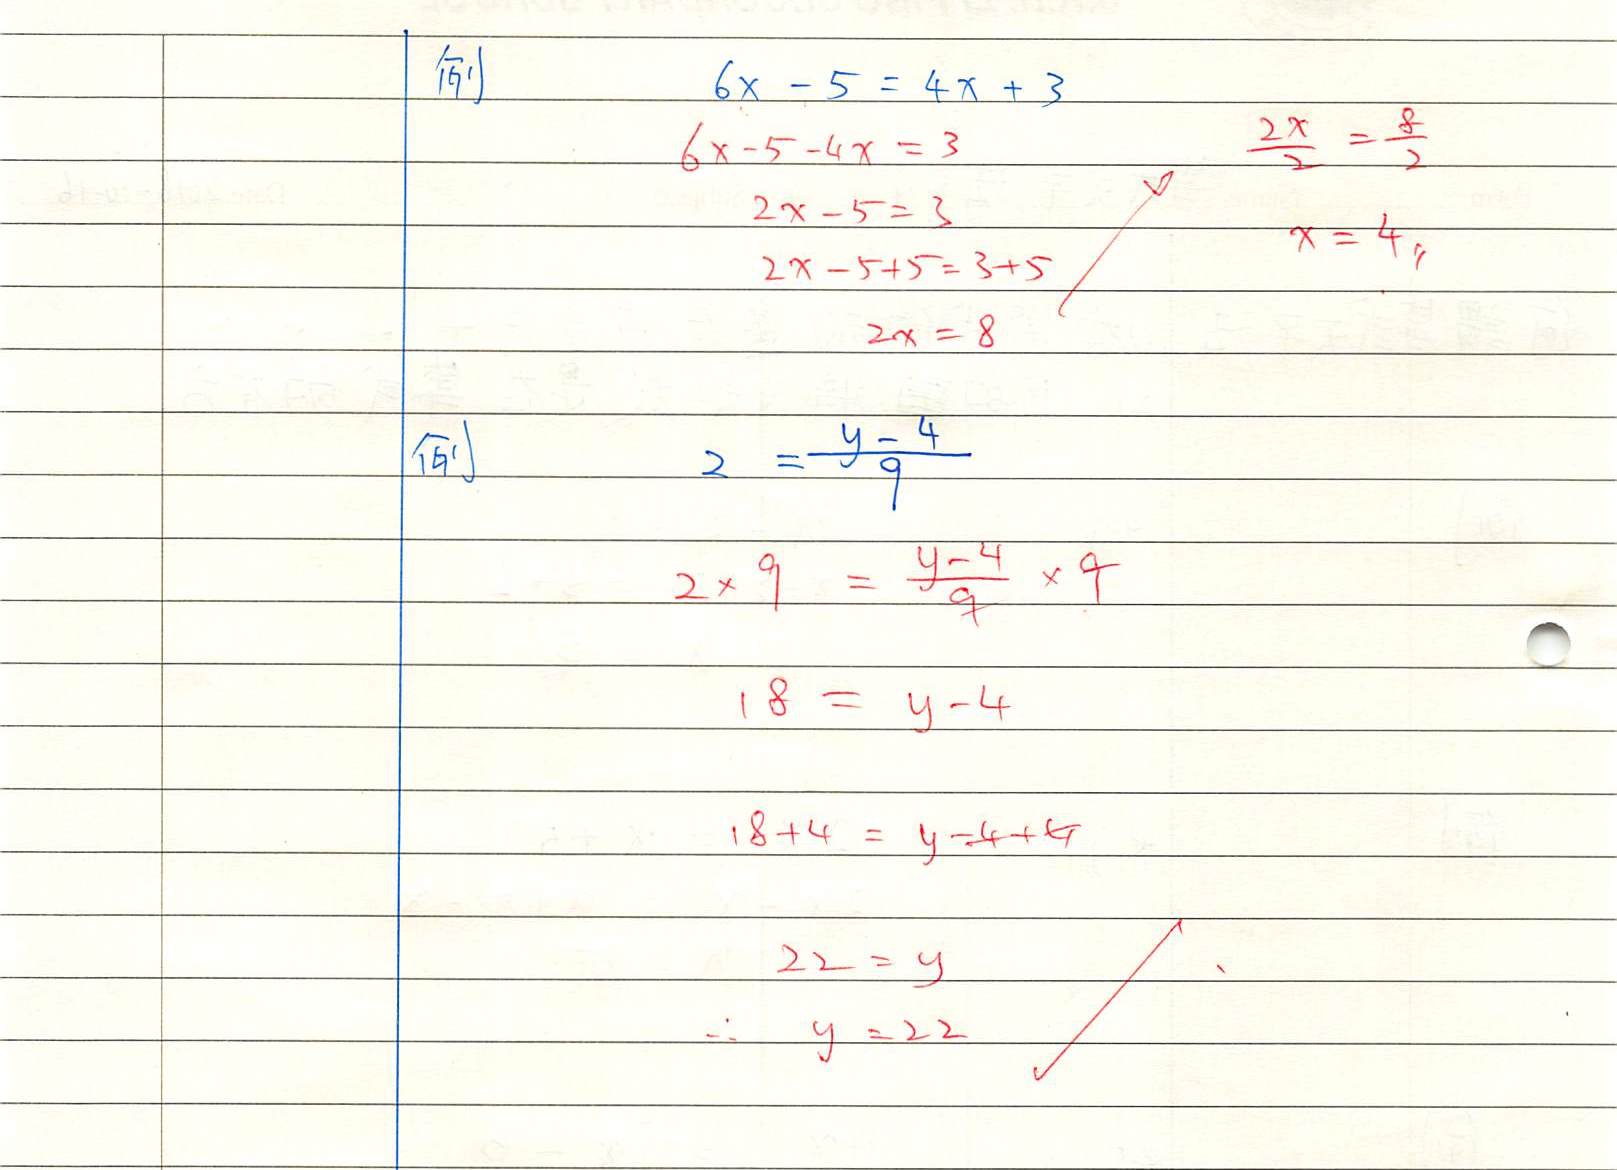 例 6x - 5 = 4x + 3
6x - 5 - 4x = 3
2x - 5 = 3
2x - 5 + 5 = 3 + 5
2x = 8
2x/2 = 8/2
x = 4
例 2 = y - 4/9
2 × 9 = y - 4/9 × 9
18 = y - 4
18 + 4 = y - 4 + 4
22 = y
∴ y = 22